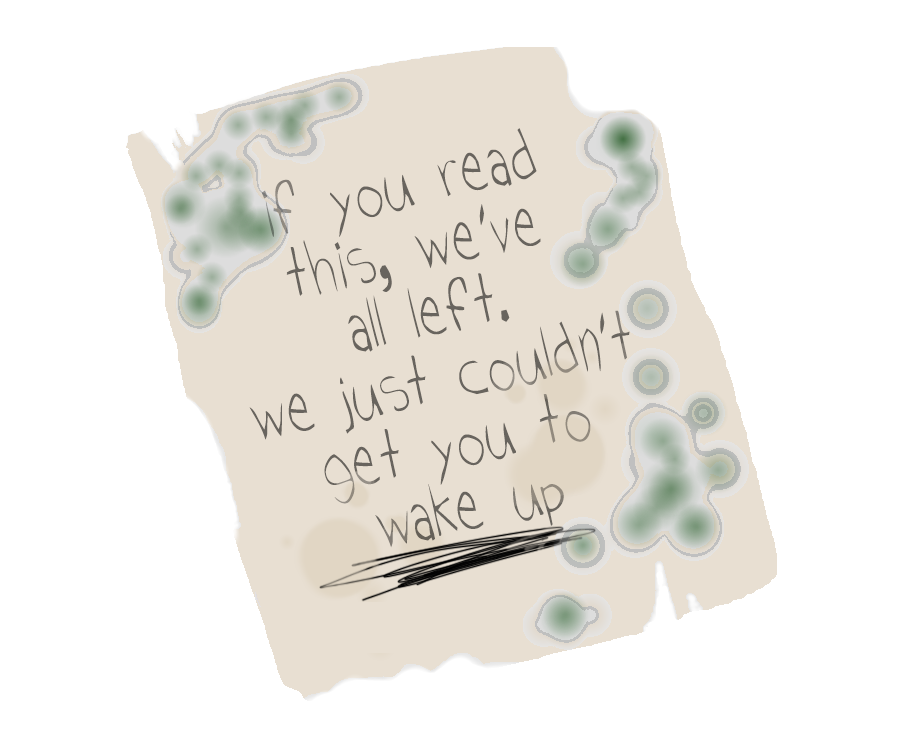 if you read
this, we've
all left.
we just couldn't
get you to
wake up